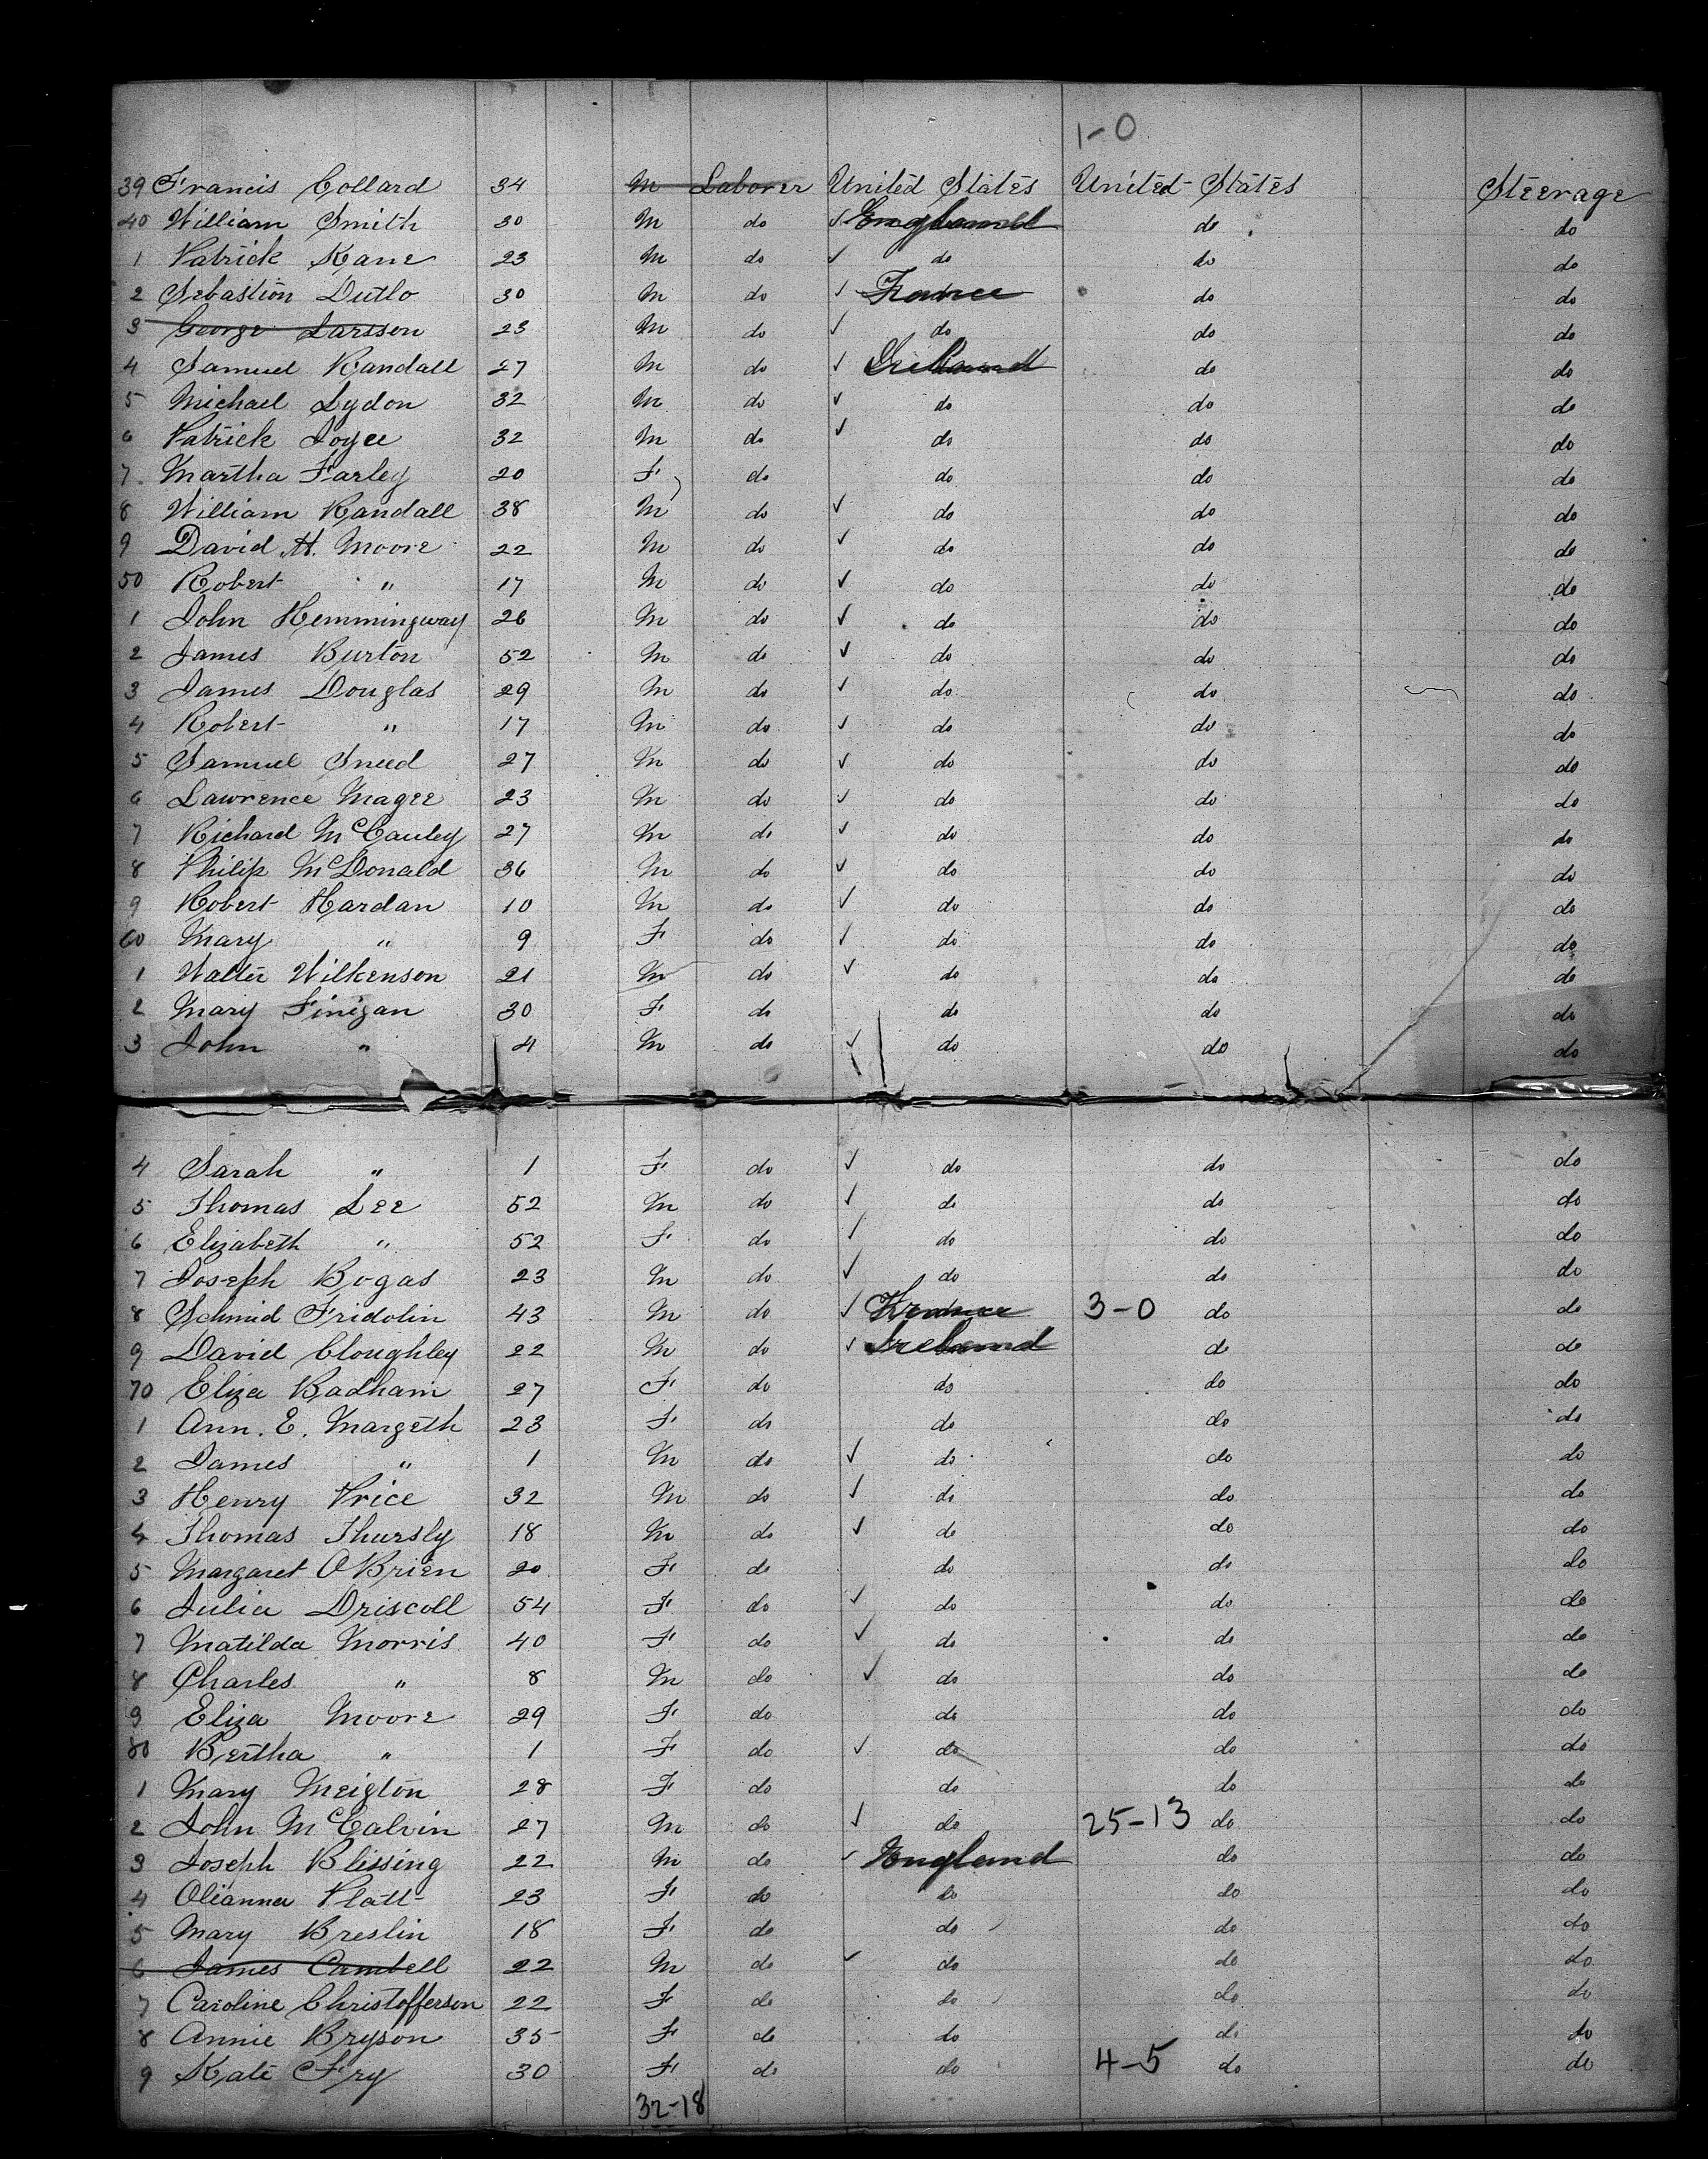 1-0
39 Francis Collard 34 M Laborer United States United States Steerage
40 William Smith 30 M do ✓ England do do
1 Patrick Kane 23 M do ✓ do do do
2 Sebastion Dutlo 30 M do ✓ France do do
3 George Larsson 23 M do ✓ do do do
4 Samuel Randall 27 M do ✓ Ireland do do
5 Michael Lydon 32 M do ✓ do do do
6 Patrick Joyce 32 M do ✓ do do do
7 Martha Farley 20 F do do do do
8 William Randall 38 M do ✓ do do do
9 David H. Moore 22 M do ✓ do do do
50 Robert " 17 M do ✓ do do do
1 John Hemmingway 26 M do ✓ do do do
2 James Burton 52 M do ✓ do do do
3 James Douglas 29 M do ✓ do do do
4 Robert " 17 M do ✓ do do do
5 Samuel Sneed 27 M do ✓ do do do
6 Lawrence Magee 23 M do ✓ do do do
7 Richard McCauley 27 M do ✓ do do do
8 Philip McDonald 36 M do ✓ do do do
9 Robert Hardan 10 M do ✓ do do do
60 Mary " 9 F do ✓ do do do
1 Walter Wilkenson 21 M do ✓ do do do
2 Mary Finigan 30 F do do do do
3 John " 4 M do ✓ do do do
4 Sarah " 1 F do ✓ do do do
5 Thomas Lee 52 M do ✓ do do do
6 Elizabeth " 52 F do ✓ do do do
7 Joseph Bogas 23 M do ✓ do do do
8 Schmid Fridolin 43 M do ✓ France 3-0 do do
9 David Cloughley 22 M do ✓ Ireland do do
70 Eliza Badham 27 F do do do do
1 Ann. E. Margeth 23 F do do do do
2 James " 1 M do ✓ do do do
3 Henry Price 32 M do ✓ do do do
4 Thomas Thursly 18 M do ✓ do do do
5 Margaret OBrien 20 F do do do do
6 Julia Driscoll 54 F do ✓ do do do
7 Matilda Morris 40 F do ✓ do do do
8 Charles " 8 M do ✓ do do do
9 Eliza Moore 29 F do do do do
80 Bertha " 1 F do ✓ do do do
1 Mary Meigton 28 F do do do do
2 John McGalvin 27 M do ✓ do 25-13 do do
3 Joseph Blissing 22 M do ✓ England do do
4 Olianna Platt 23 F do do do do
5 Mary Breslin 18 F do do do do
6 James Cambell 22 M do ✓ do do do
7 Caroline Christofferson 22 F do do do do
8 Annie Bryson 35 F do do do do
9 Kate Fry 30 F do do 4-5 do do
32-18